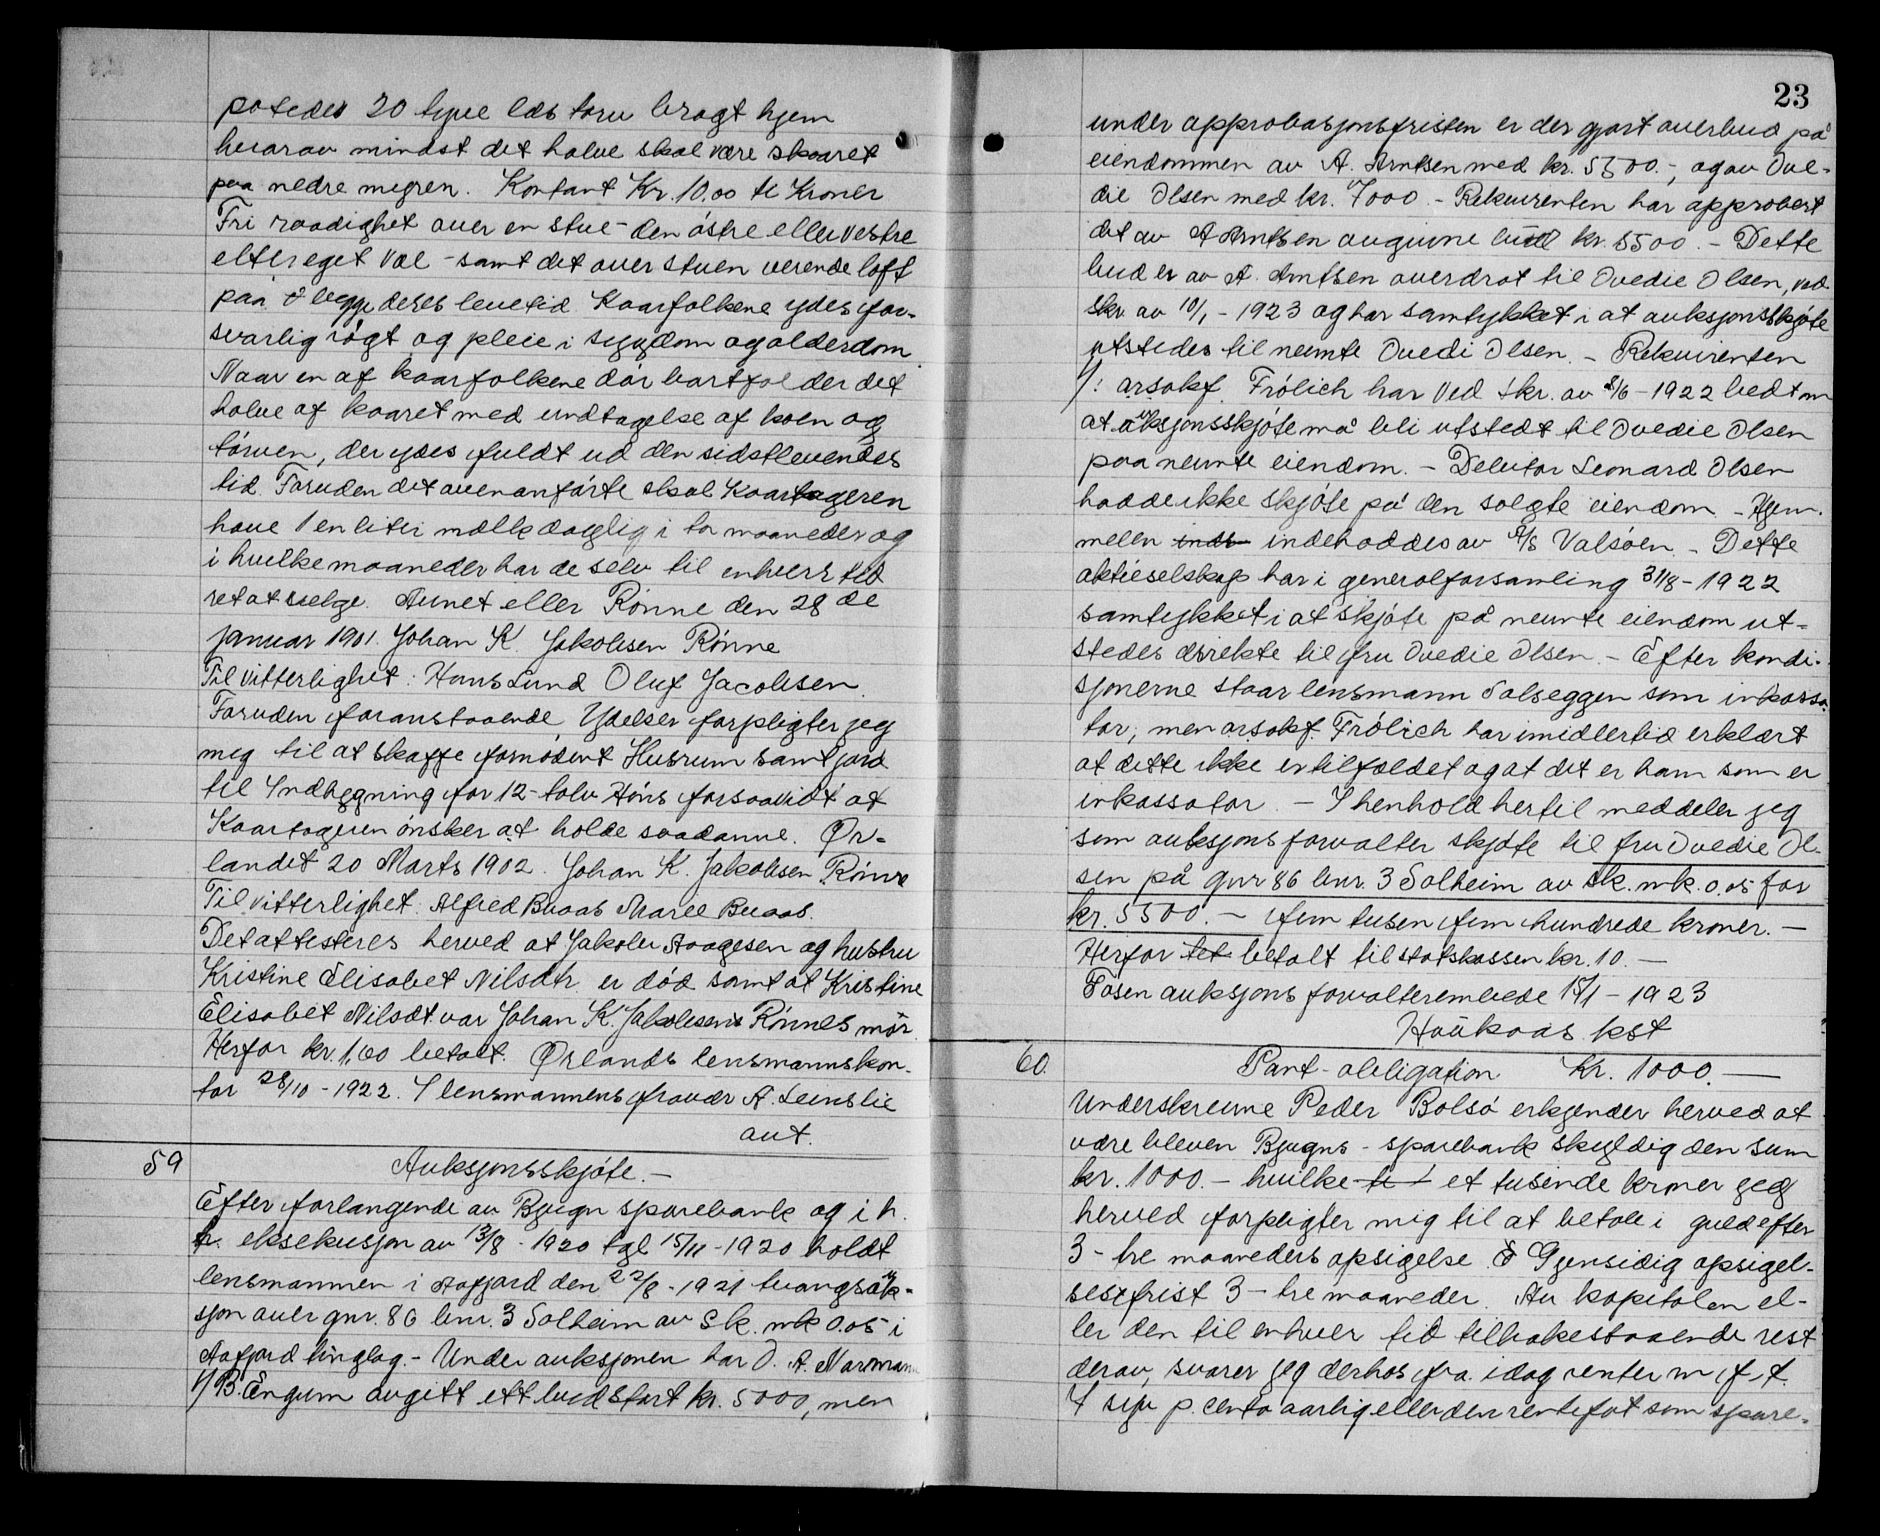 poteder 20 tyve læs torv bragt hjem
hvorav mindst det halve skal være skaaret
paa nedre myren. Kontant Kr. 10.00 ti Kroner
Fri raadighet over en stue - den østre eller vestre
efter eget val - samt det over stuen verende loft
paa begge deres levetid. Kaarfolkene ydes for-
svarlig røgt og pleie i sygdom og alderdom
Naar en af kaarfolkene dør bortfalder det
halve af kaaret med undtagelse af koen og
tørven, der ydes fuldt ud den sidstlevendes
tid. Foruden det ovenanførte skal Kaartageren
have 1 en liter mælk daglig i to maaneder og
i hvilke maaneder har de selv til enhver tid
ret at vælge. Aunet eller Rønne den 28 de
Januar 1901. Johan K. Jakobsen Rønne
Til vitterlighet: Hans Lund Oluf Jacobsen.
Foruden foranstaaende Ydelser forpligter jeg
mig til at skaffe fornødent Husrum samt jord
til Indhegning for 12 - tolv Høns forsaavidt at
Kaartageren ønsker at holde saadanne. Ør-
landet 20 Marts 1902. Johan K. Jakobsen Rønne
Til vitterlighet. Alfred Buaas Marel Buaas.
Det attesteres herved at Jakob Aagesen og hustru
Kristine Elisabet Nilsdtr. er død samt at Kristine
Elisabet Nilsdt. var Johan K. Jakobsens Rønnes mor
Herfor kr. 1,00 betalt. Ørlands lensmannskon-
tor 28/10 - 1922. I lensmannens fravær A. Leinslie
aut.
59
Auksjonsskjøte. -
Efter forlangende av Bjugn sparebank og i h.
h. eksekusjon av 13/8 - 1920 tgl 15/11 - 1920 holdt
lensmannen i Aafjord den 22/8 - 1921 tvangsauk-
sjon over gnr. 86 bnr. 3 Solheim av Sk. mk 0.05 i
Aafjord tinglag. - Under auksjonen har O. A. Normann
1/ B. Engum avgitt ett bud stort kr. 5000, men
23
under approbasjonsfristen er der gjort overbud på
eiendommen av A. Arntsen med kr. 5500.-, og av Ove-
die Olsen med kr. 7000. - Rekvirenten har approbert
det av A Arntsen avgivne bud kr. 5500. - Dette
bud er av A. Arntsen overdrat til Ovedie Olsen, ved
skr. av 10/1 - 1923 og har samtykket i at auksjonsskjøte
utstedes til nevnte Ovedi Olsen. - Rekvirenten
1/: o.r.sakf. Frølich har ved skr. av 8/6 - 1922 bedt om
at auksjonsskjøte må bli utstedt til Ovedie Olsen
paa nevnte eiendom. - Debitor Leonard Olsen
hadde ikke skjøte på den solgte eiendom. - Hjem-
melen inde indehaddes av A/S Valsøen. - Dette
aktieselskap har i generalforsamling 31/8 - 1922
samtykket i at skjøte på nevnte eiendom ut-
stedes direkte til fru Ovedie Olsen. - Efter kondi-
sjonerne staar lensmann Solseggen som inkassa-
tor, men o.r.sakf. Frølich har imidlertid erklært
at dette ikke er tilfældet og at det er ham som er
inkassator. - I henhold hertil meddeler jeg
som auksjonsforvalter skjøte til fru Ovedie Ol-
sen på gnr 86 bnr. 3 Solheim av sk. mk. 0.05 for
kr. 5500. - fem tusen fem hundrede kroner. -
Herfor bet betalt til statskassen kr. 10. -
Fosen auksjonsforvalterembede 15/1 - 1923
Haukaas kst
60.
Pant-obligation Kr. 1000. -
Underskrevne Peder Bolsø erkjender herved at
være bleven Bjugns - sparebank skyldig den sum
kr. 1000. - hvilke ti et tusinde kroner jeg
herved forpligter mig til at betale i guld efter
3 - tre maaneders opsigelse. Gjensidig opsigel-
sesfrist 3 - tre maaneder. Av kapitalen el-
ler den til enhver tid tilbakestaaende rest
derav, svarer jeg derhos fra idag renter m f. t.
7 syv p. cento aarlig eller den rentefot som spare-